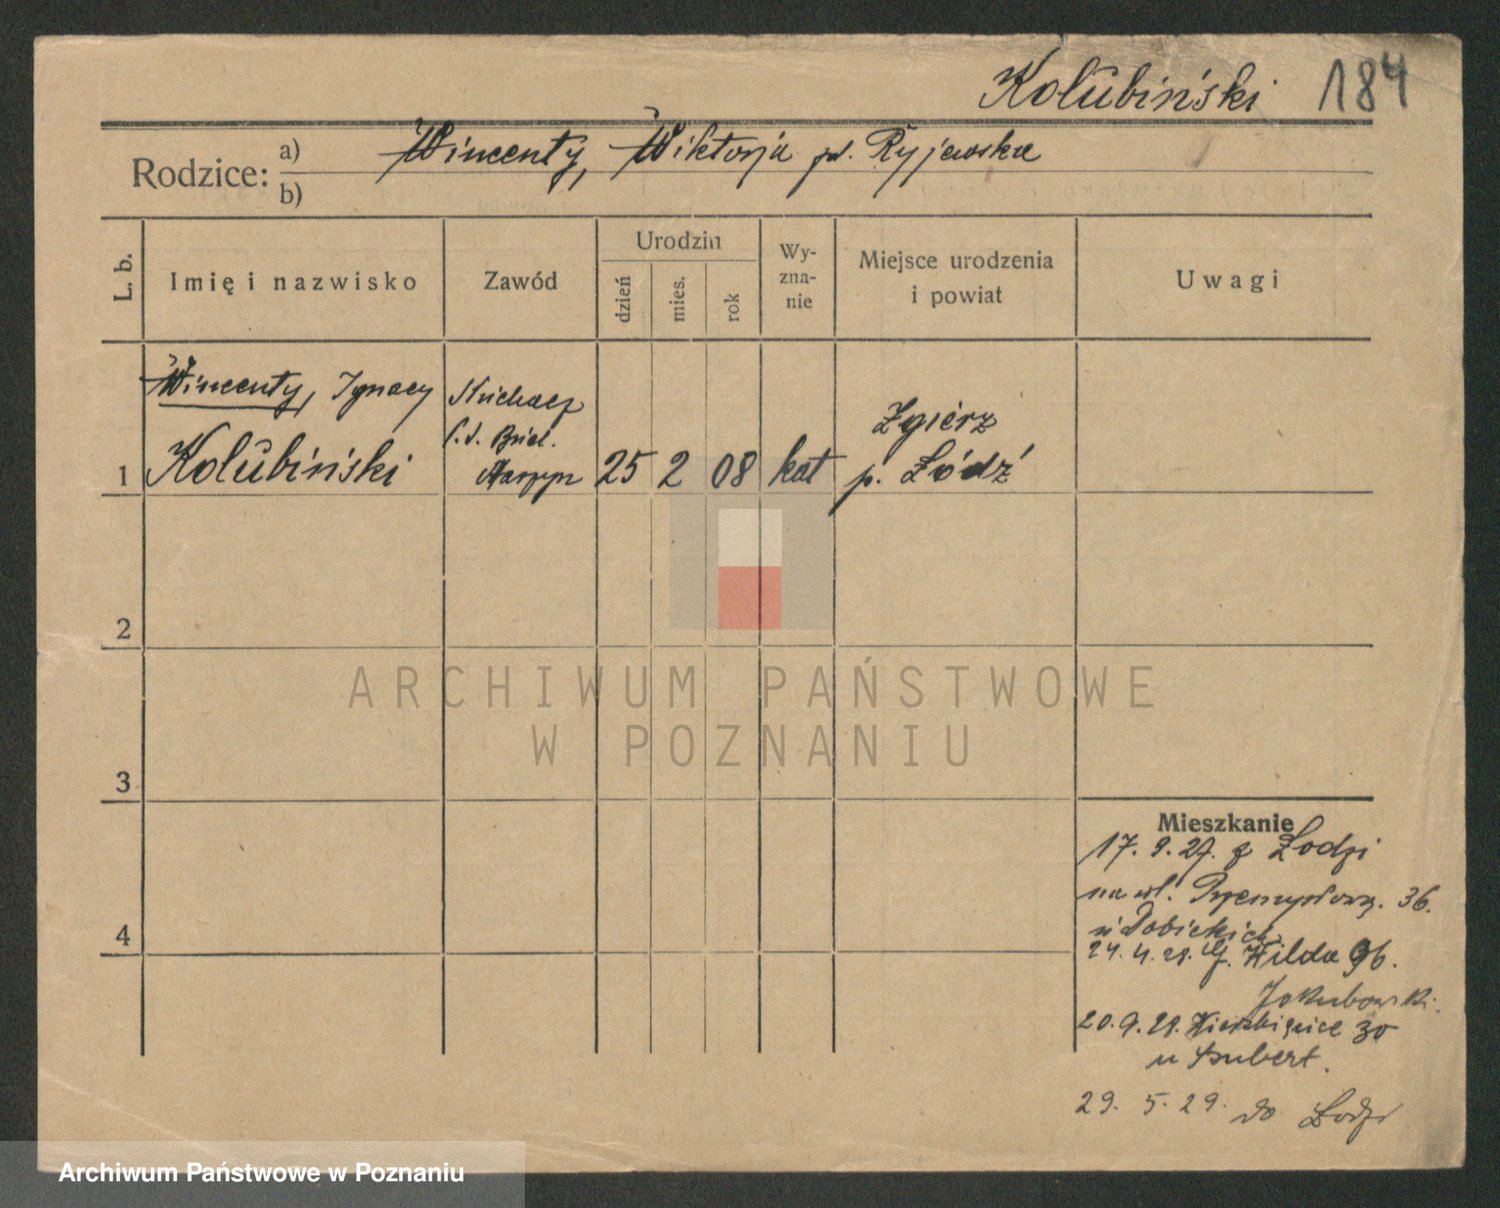 Kolŭbiński 184
Rodzice: a) Wincenty, Wiktorja Ryjewska
b)
L. b.
Imię i nazwisko
Zawód
Urodzin
dzień
mies.
rok
Wy-
zna-
nie
Miejsce urodzenia
i powiat
Uwagi
Wincenty, Ignacy
1 Kolŭbiński
Słuchacz
25 2 08 kat
Zgierz
p. Łódź
2
3
4
ARCHIWUM PAŃSTWOWE
W POZNANIU
Mieszkanie
17. 9. 27. z Łodzi
na ul. 36.
24. 4. 28. G. Wilda 96.
Jakubowski.
20. 9. 28. 30
u
29. 5. 29. do Łodzi
Archiwum Państwowe w Poznaniu